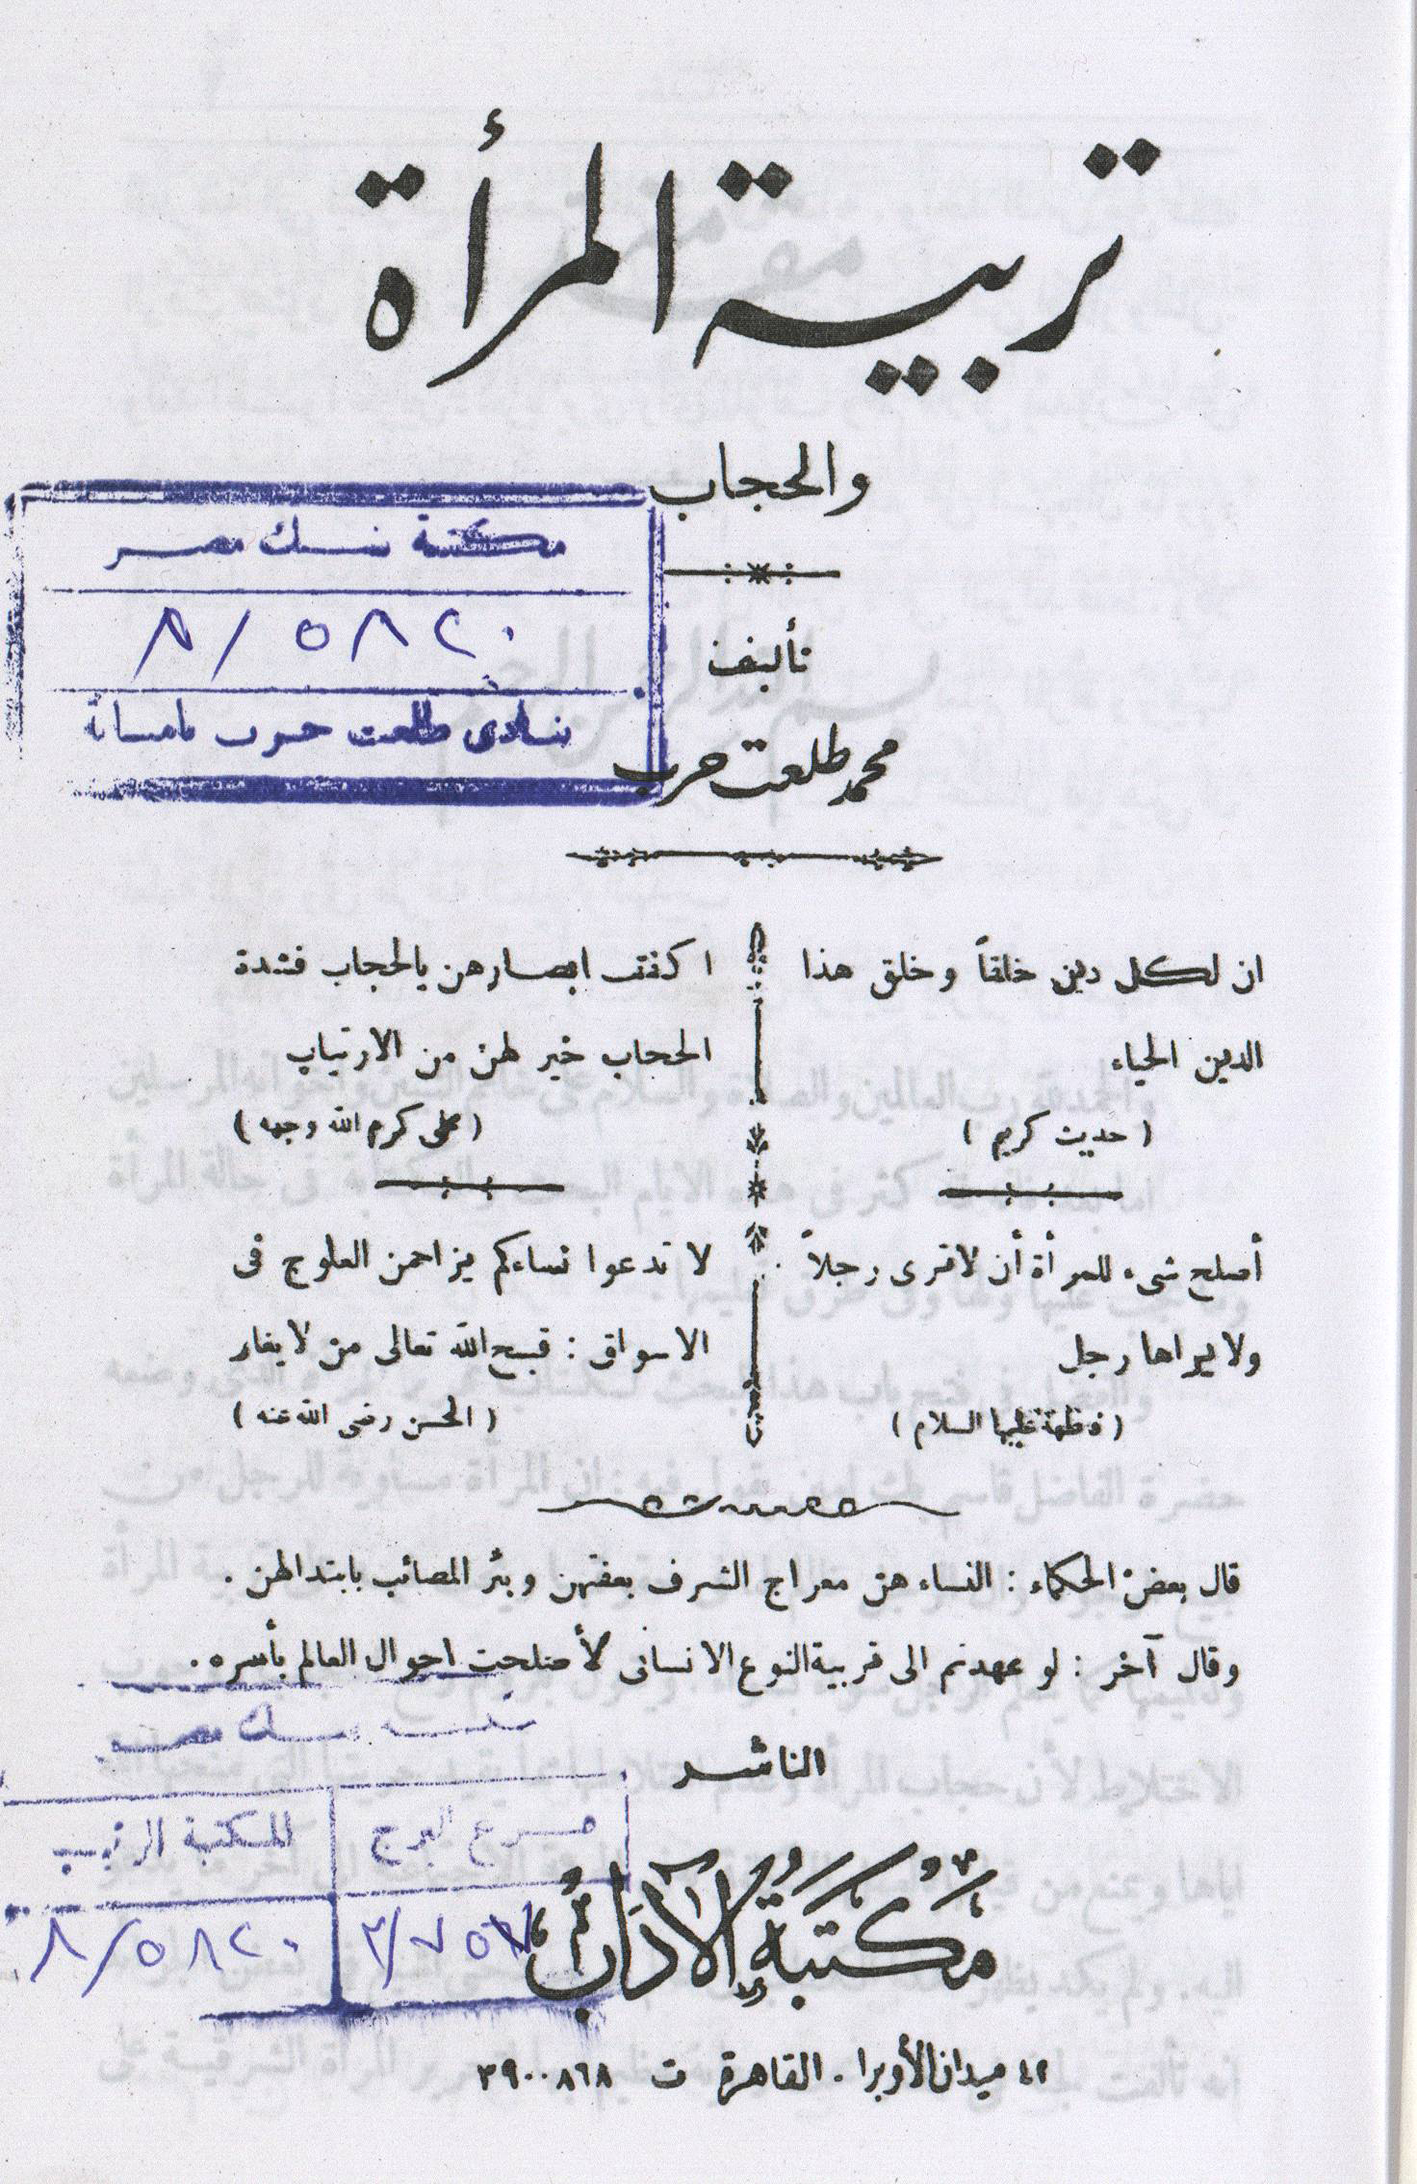 تربية المرأة
والحجاب
تأليف
محمد طلعت حرب
مكتبة بنك مصر
٨/٥٨٢٠
بنادى طلعت حرب
ان لكل دين خلقاً وخلق هذا
الدين الحياء
( حديث كريم )
أصلح شىء للمرأة أن لا ترى رجلاً
ولا يراها رجل
( فاطمة عليها السلام )
اكفف ابصارهن بالحجاب فشدة
الحجاب خير لهن من الارتياب
( على كرم الله وجهه )
لا تدعوا نساءكم يزاحمن العلوج فى
الاسواق : قبح الله تعالى من لا يغار
( الحسن رضى الله عنه )
قال بعض الحكماء : النساء هن معراج الشرف بعفتهن وبئر المصائب بابتذالهن .
وقال آخر : لو عهدتم الى تربية النوع الانسانى لأصلحت احوال العالم بأسره .
بنك مصر
فرع البرج
المكتبة الرئيسية
٨/٥٨٢٠
الناشر
مكتبة الآداب
٤٢ ميدان الأوبرا - القاهرة ت ٣٩٠٠٨٦٨